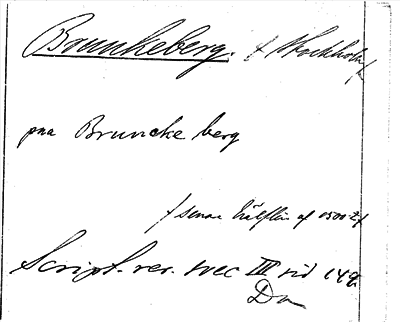 Brunkeberg. / Stockholm /
pna Bruncke berg
/ senare hälften af 1500 t /
Script. rer. svec III sid 149.